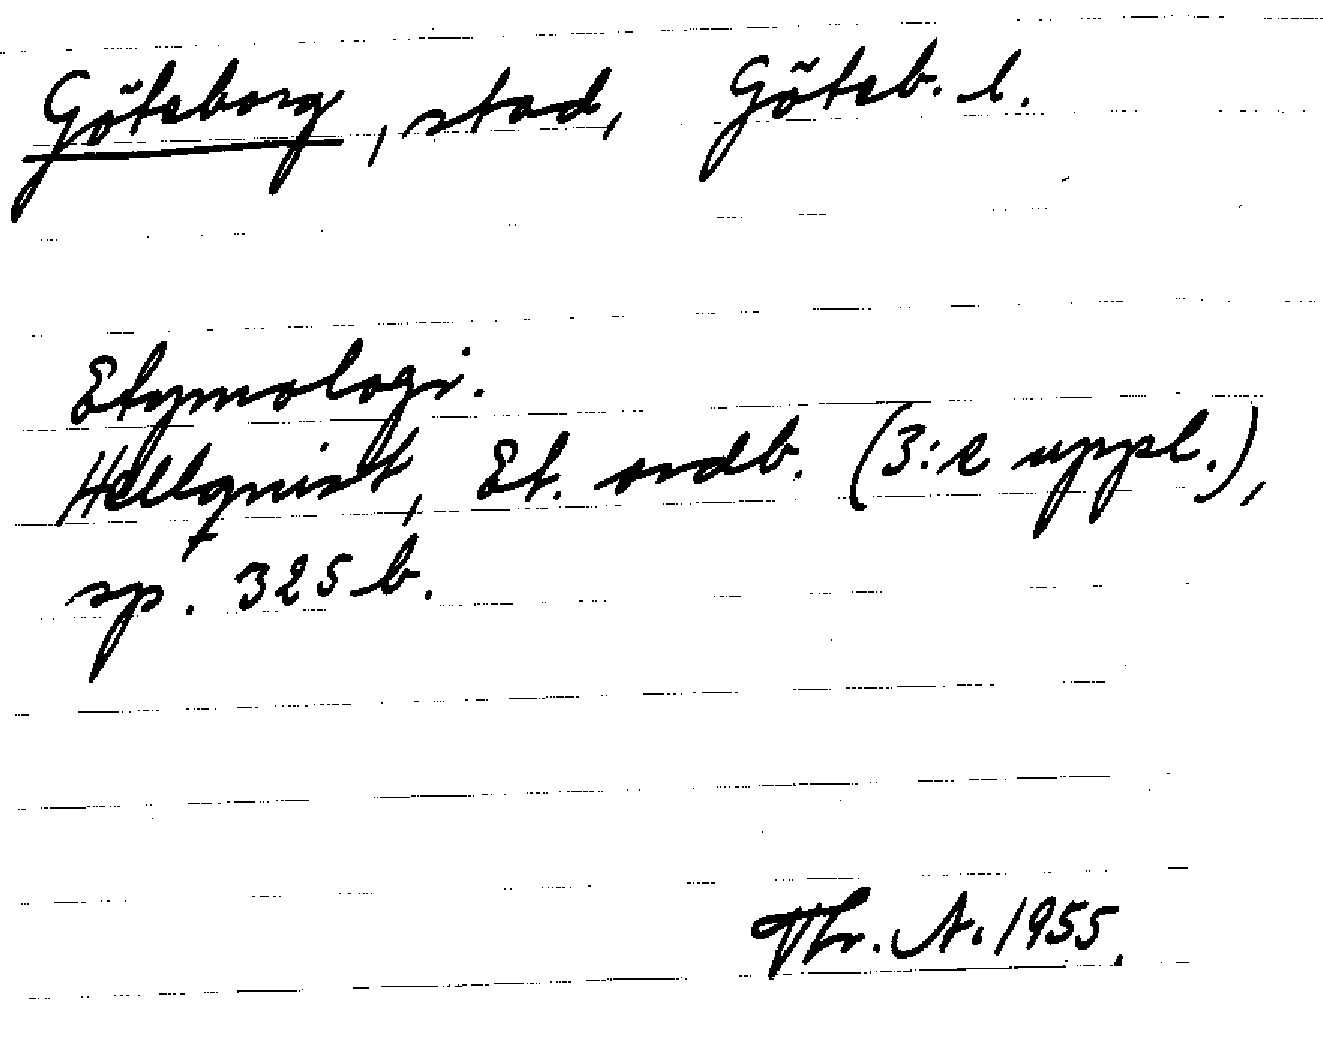 Göteborg, stad, Göteb. l.
Etymologi.
Hellquist, Et. ordb. (3:e uppl.),
sp. 325 b.
Thr. A. 1955.